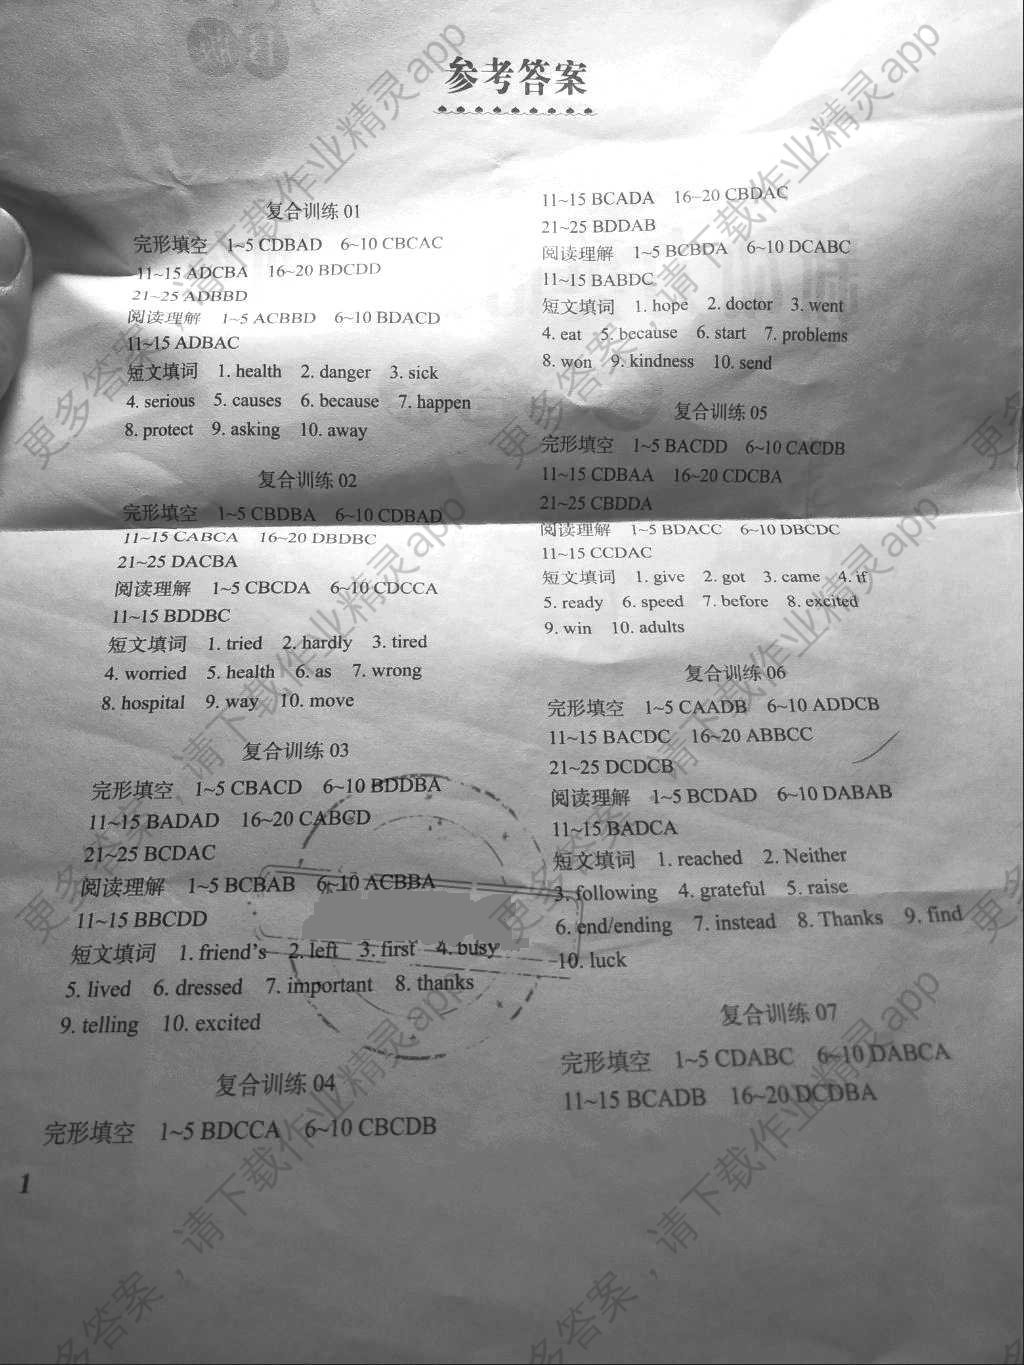 参考答案
复合训练 01
完形填空 1~5 CDBAD 6~10 CBCAC
11~15 ADCBA 16~20 BDCDD
21~25 ADBBD
阅读理解 1~5 ACBBD 6~10 BDACD
11~15 ADBAC
短文填词 1. health 2. danger 3. sick
4. serious 5. causes 6. because 7. happen
8. protect 9. asking 10. away
复合训练 02
完形填空 1~5 CBDBA 6~10 CDBAD
11~15 CABCA 16~20 DBDBC
21~25 DACBA
阅读理解 1~5 CBCDA 6~10 CDCCA
11~15 BDDBC
短文填词 1. tried 2. hardly 3. tired
4. worried 5. health 6. as 7. wrong
8. hospital 9. way 10. move
复合训练 03
完形填空 1~5 CBACD 6~10 BDDBA
11~15 BADAD 16~20 CABCD
21~25 BCDAC
阅读理解 1~5 BCBAB 6~10 ACBBA
11~15 BBCDD
短文填词 1. friend's 2. left 3. first 4. busy
5. lived 6. dressed 7. important 8. thanks
9. telling 10. excited
复合训练 04
完形填空 1~5 BDCCA 6~10 CBCDB
1
11~15 BCADA 16~20 CBDAC
21~25 BDDAB
阅读理解 1~5 BCBDA 6~10 DCABC
11~15 BABDC
短文填词 1. hope 2. doctor 3. went
4. eat 5. because 6. start 7. problems
8. won 9. kindness 10. send
复合训练 05
完形填空 1~5 BACDD 6~10 CACDB
11~15 CDBAA 16~20 CDCBA
21~25 CBDDA
阅读理解 1~5 BDACC 6~10 DBCDC
11~15 CCDAC
短文填词 1. give 2. got 3. came 4. if
5. ready 6. speed 7. before 8. excited
9. win 10. adults
复合训练 06
完形填空 1~5 CAADB 6~10 ADDCB
11~15 BACDC 16~20 ABBCC
21~25 DCDCB
阅读理解 1~5 BCDAD 6~10 DABAB
11~15 BADCA
短文填词 1. reached 2. Neither
3. following 4. grateful 5. raise
6. end/ending 7. instead 8. Thanks 9. find
10. luck
复合训练 07
完形填空 1~5 CDABC 6~10 DABCA
11~15 BCADB 16~20 DCDBA
更多答案，请下载作业精灵app
更多答案，请下载作业精灵app
更多答案，请下载作业精灵app
更多答案，请下载作业精灵app